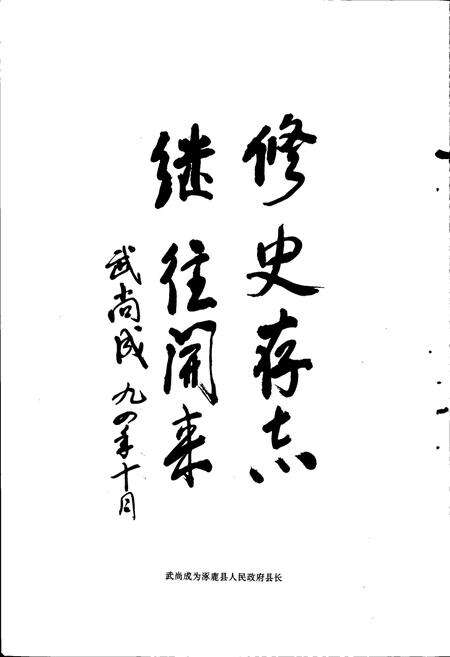 修史存志
继往開来
武尚成 九四年十月
武尚成为涿鹿县人民政府县长